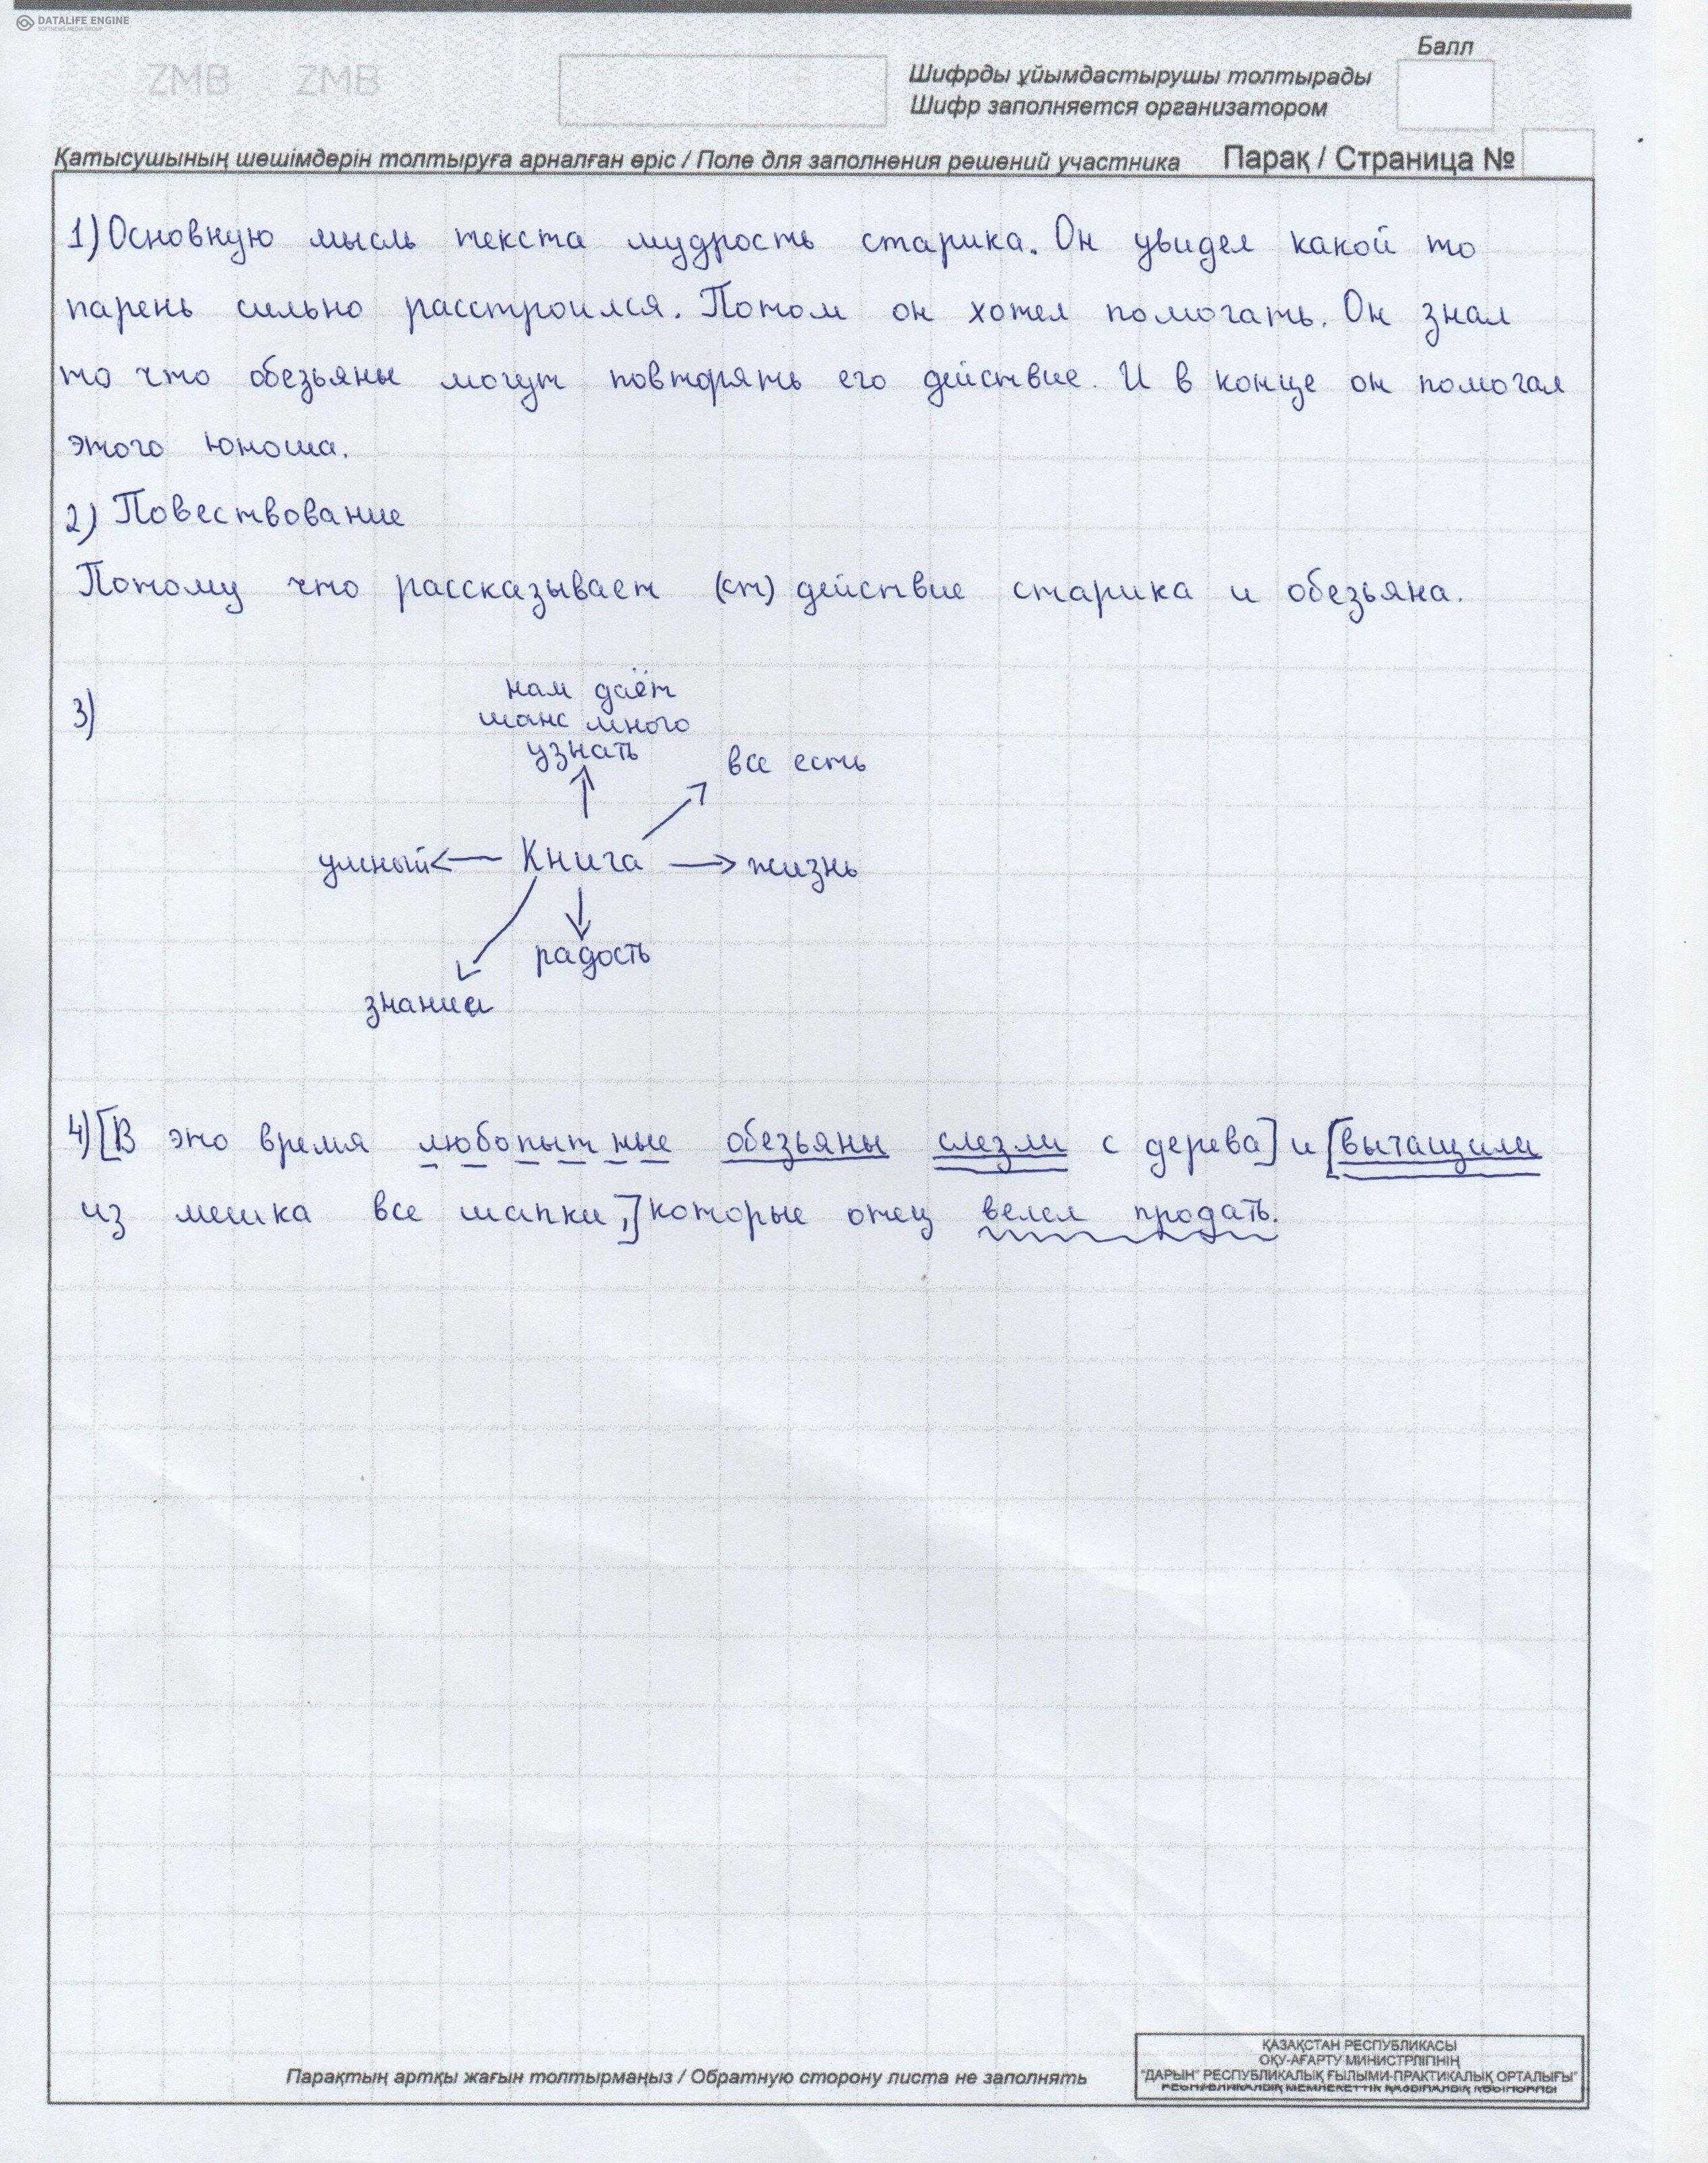 DATALIFE ENGINE
SOFTNEWS MEDIA GROUP
ZMB ZMB
Балл
Шифрды ұйымдастырушы толтырады
Шифр заполняется организатором
Қатысушының шешімдерін толтыруға арналған өріс / Поле для заполнения решений участника Парақ / Страница №
1) Основную мысль текста мудрость старика. Он увидел какой то
парень сильно расстроился. Потом он хотел помогать. Он знал
то что обезьяны могут повторять его действие. И в конце он помогал
этого юноша.
2) Повествование
Потому что рассказывает (ст) действие старика и обезьяна.
3)
нам даёт
шанс много
узнать
все есть
умный Книга жизнь
радость
знание
4) [В это время любопытные обезьяны слезли с дерева] и [вытащили
из мешка все шапки,] которые отец велел продать.
Парақтың артқы жағын толтырмаңыз / Обратную сторону листа не заполнять
ҚАЗАҚСТАН РЕСПУБЛИКАСЫ
ОҚУ-АҒАРТУ МИНИСТРЛІГІНІҢ
"ДАРЫН" РЕСПУБЛИКАЛЫҚ ҒЫЛЫМИ-ПРАКТИКАЛЫҚ ОРТАЛЫҒЫ"
РЕСПУБЛИКАЛЫҚ МЕМЛЕКЕТТІК ҚАЗЫНАЛЫҚ КӘСІПОРНЫ